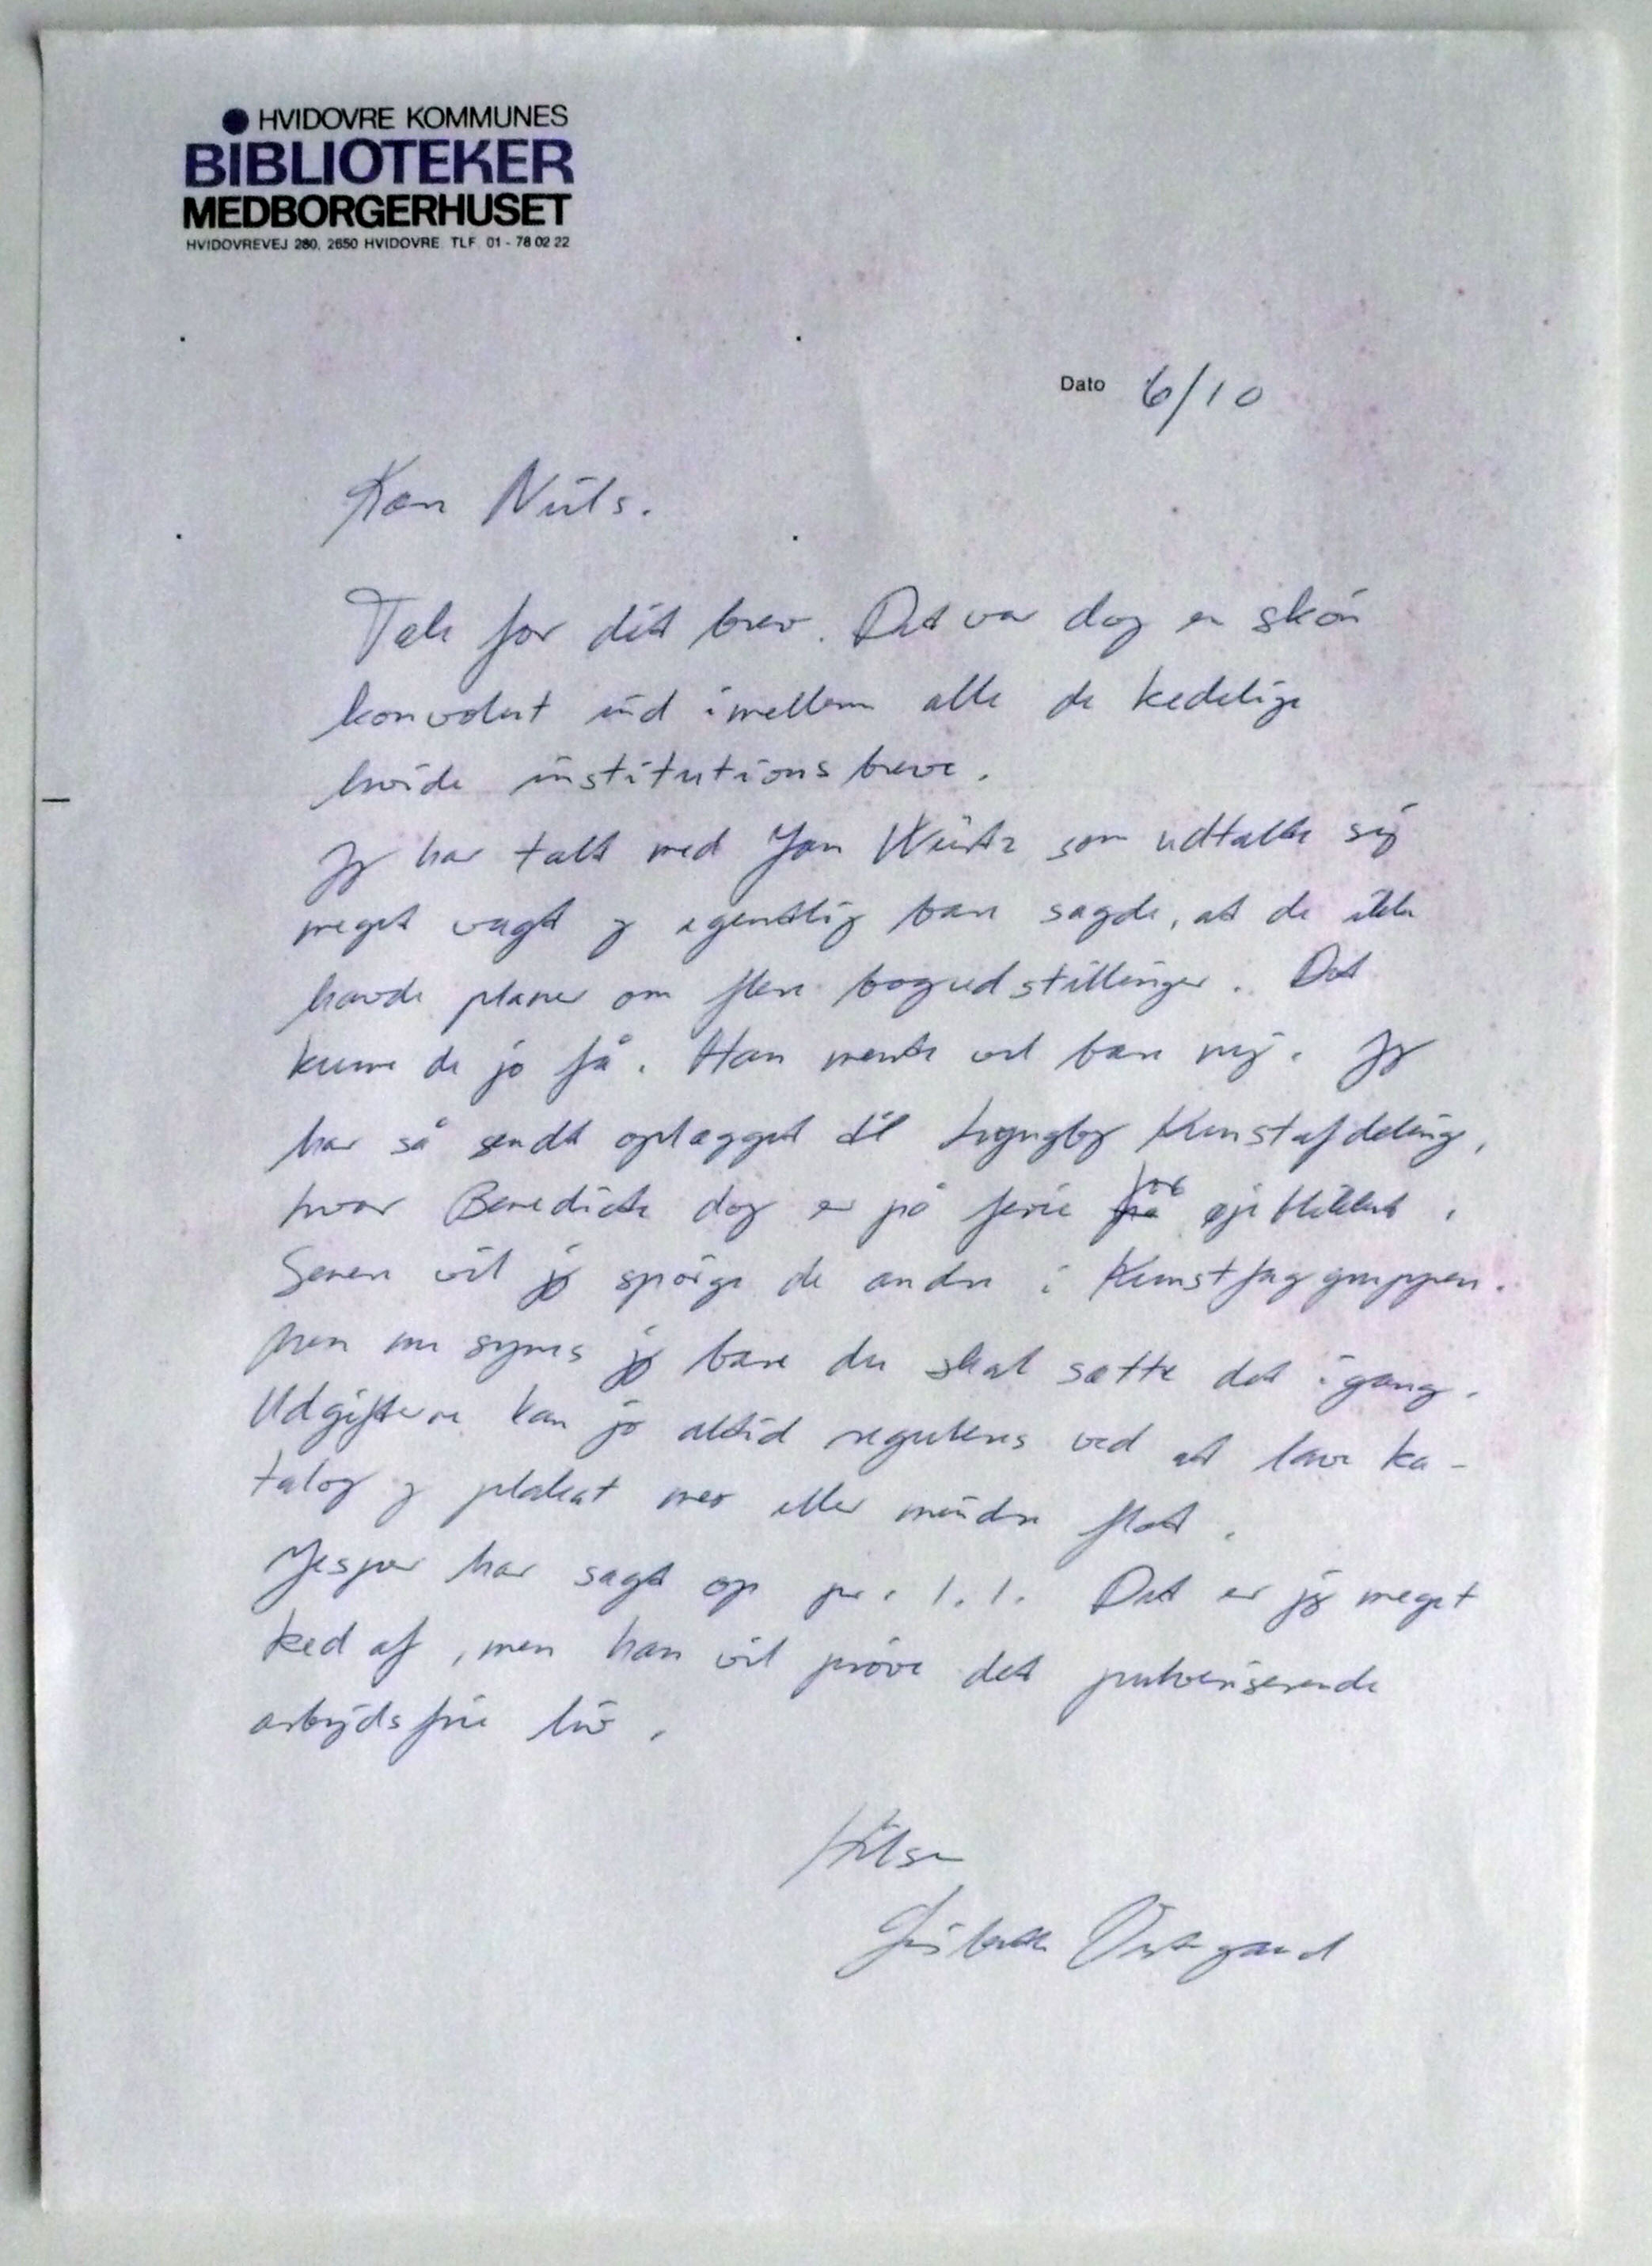 HVIDOVRE KOMMUNES
BIBLIOTEKER
MEDBORGERHUSET
HVIDOVREVEJ 280, 2650 HVIDOVRE. TLF. 01 - 78 02 22
Dato 6/10
Kære Niels.
Tak for dit brev. Det var dog en skön
konvolut ind imellem alle de kedelige
hvide institutionsbreve.
Jeg har talt med Jan Würtz som udtalte sig
meget vagt og egentlig bare sagde, at de ikke
havde planer om flere bogudstillinger. Det
kunne de jo få. Han mente vel bare nej. Jeg
har så sendt oplægget til Lyngby Kunstafdeling,
hvor Benedicte dog er på ferie for øjeblikket.
Senere vil jeg spörge de andre i Kunstfaggruppen.
Men nu synes jeg bare du skal sætte det igang.
Udgifterne kan jo altid reguleres ved at lave ka-
talog og plakat mer eller mindre flot.
Jesper har sagt op pr. 1.1. Det er jeg meget
ked af, men han vil pröve det pulveriserende
arbejdsfrie liv.
Hilsen
Lisbeth Østergaard